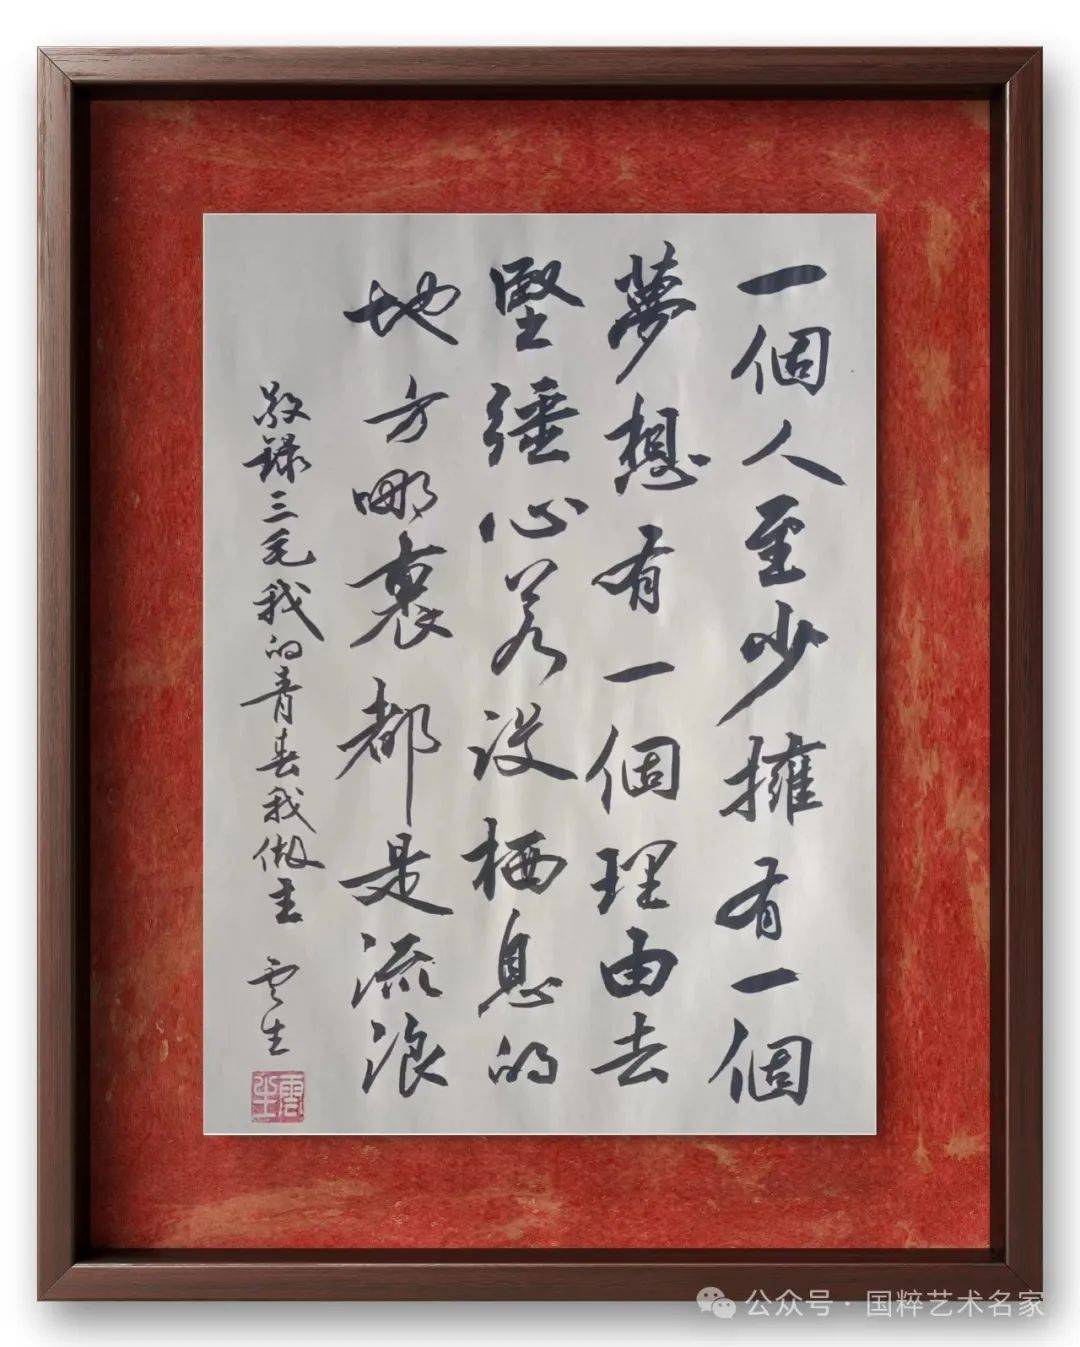 一個人至少擁有一個
夢想有一個理由去
堅彊心若没栖息的
地方哪裏都是流浪
敬録三毛我的青春我做主 雲生
雲生
公众号 · 国粹艺术名家